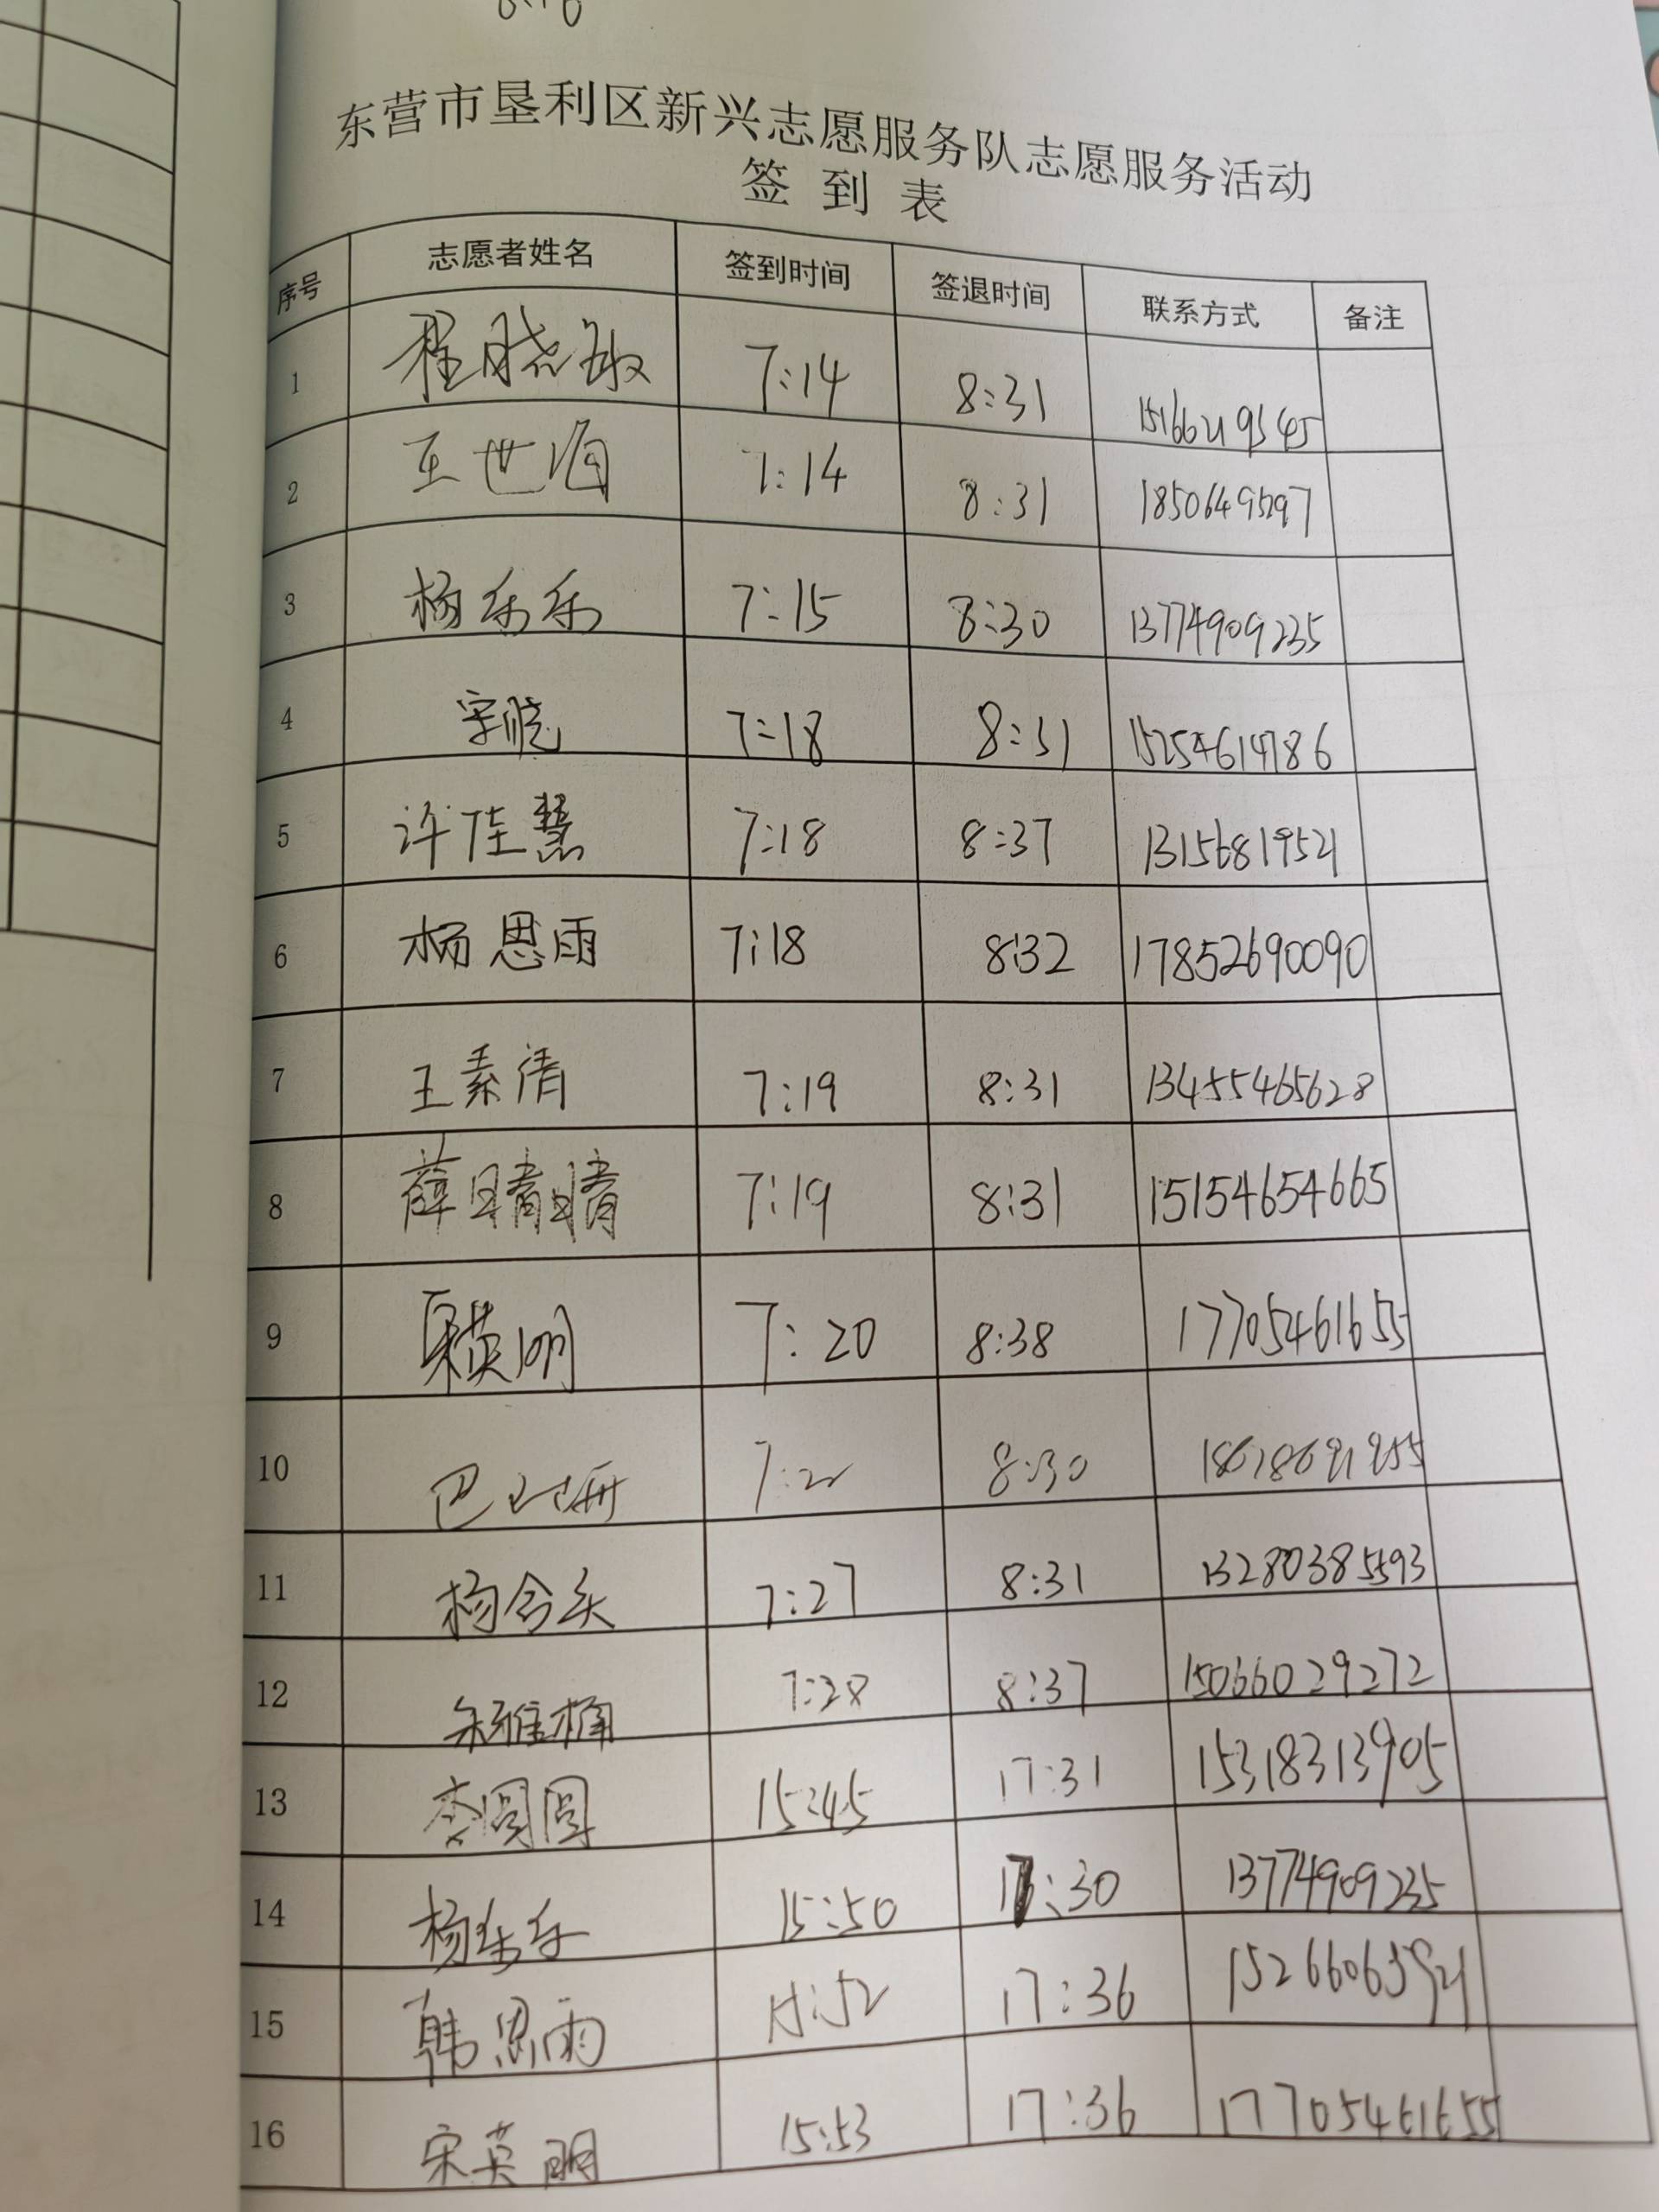 东营市垦利区新兴志愿服务队志愿服务活动
签 到 表
序号 志愿者姓名 签到时间 签退时间 联系方式 备注
1 程晓敏 7:14 8:31
2 王世海 7:14 8:31
3 杨乐乐 7:15 8:30 13774909235
4 宋晓 7:18 8:31 15254614786
5 许佳慧 7:18 8:37 13156819521
6 杨思雨 7:18 8:32 17852690090
7 王素清 7:19 8:31 13455465628
8 薛晴晴 7:19 8:31 15154654665
9 宋英明 7:20 8:38 17705461655
10 巴 8:30
11 杨令 7:27 8:31 13280385593
12 7:28 8:37 15066029272
13 李圆圆 15:45 17:31 15318313905
14 杨乐乐 15:50 17:30 13774909235
15 韩思雨 15:52 17:36 15266063921
16 宋英明 15:53 17:36 17705461655